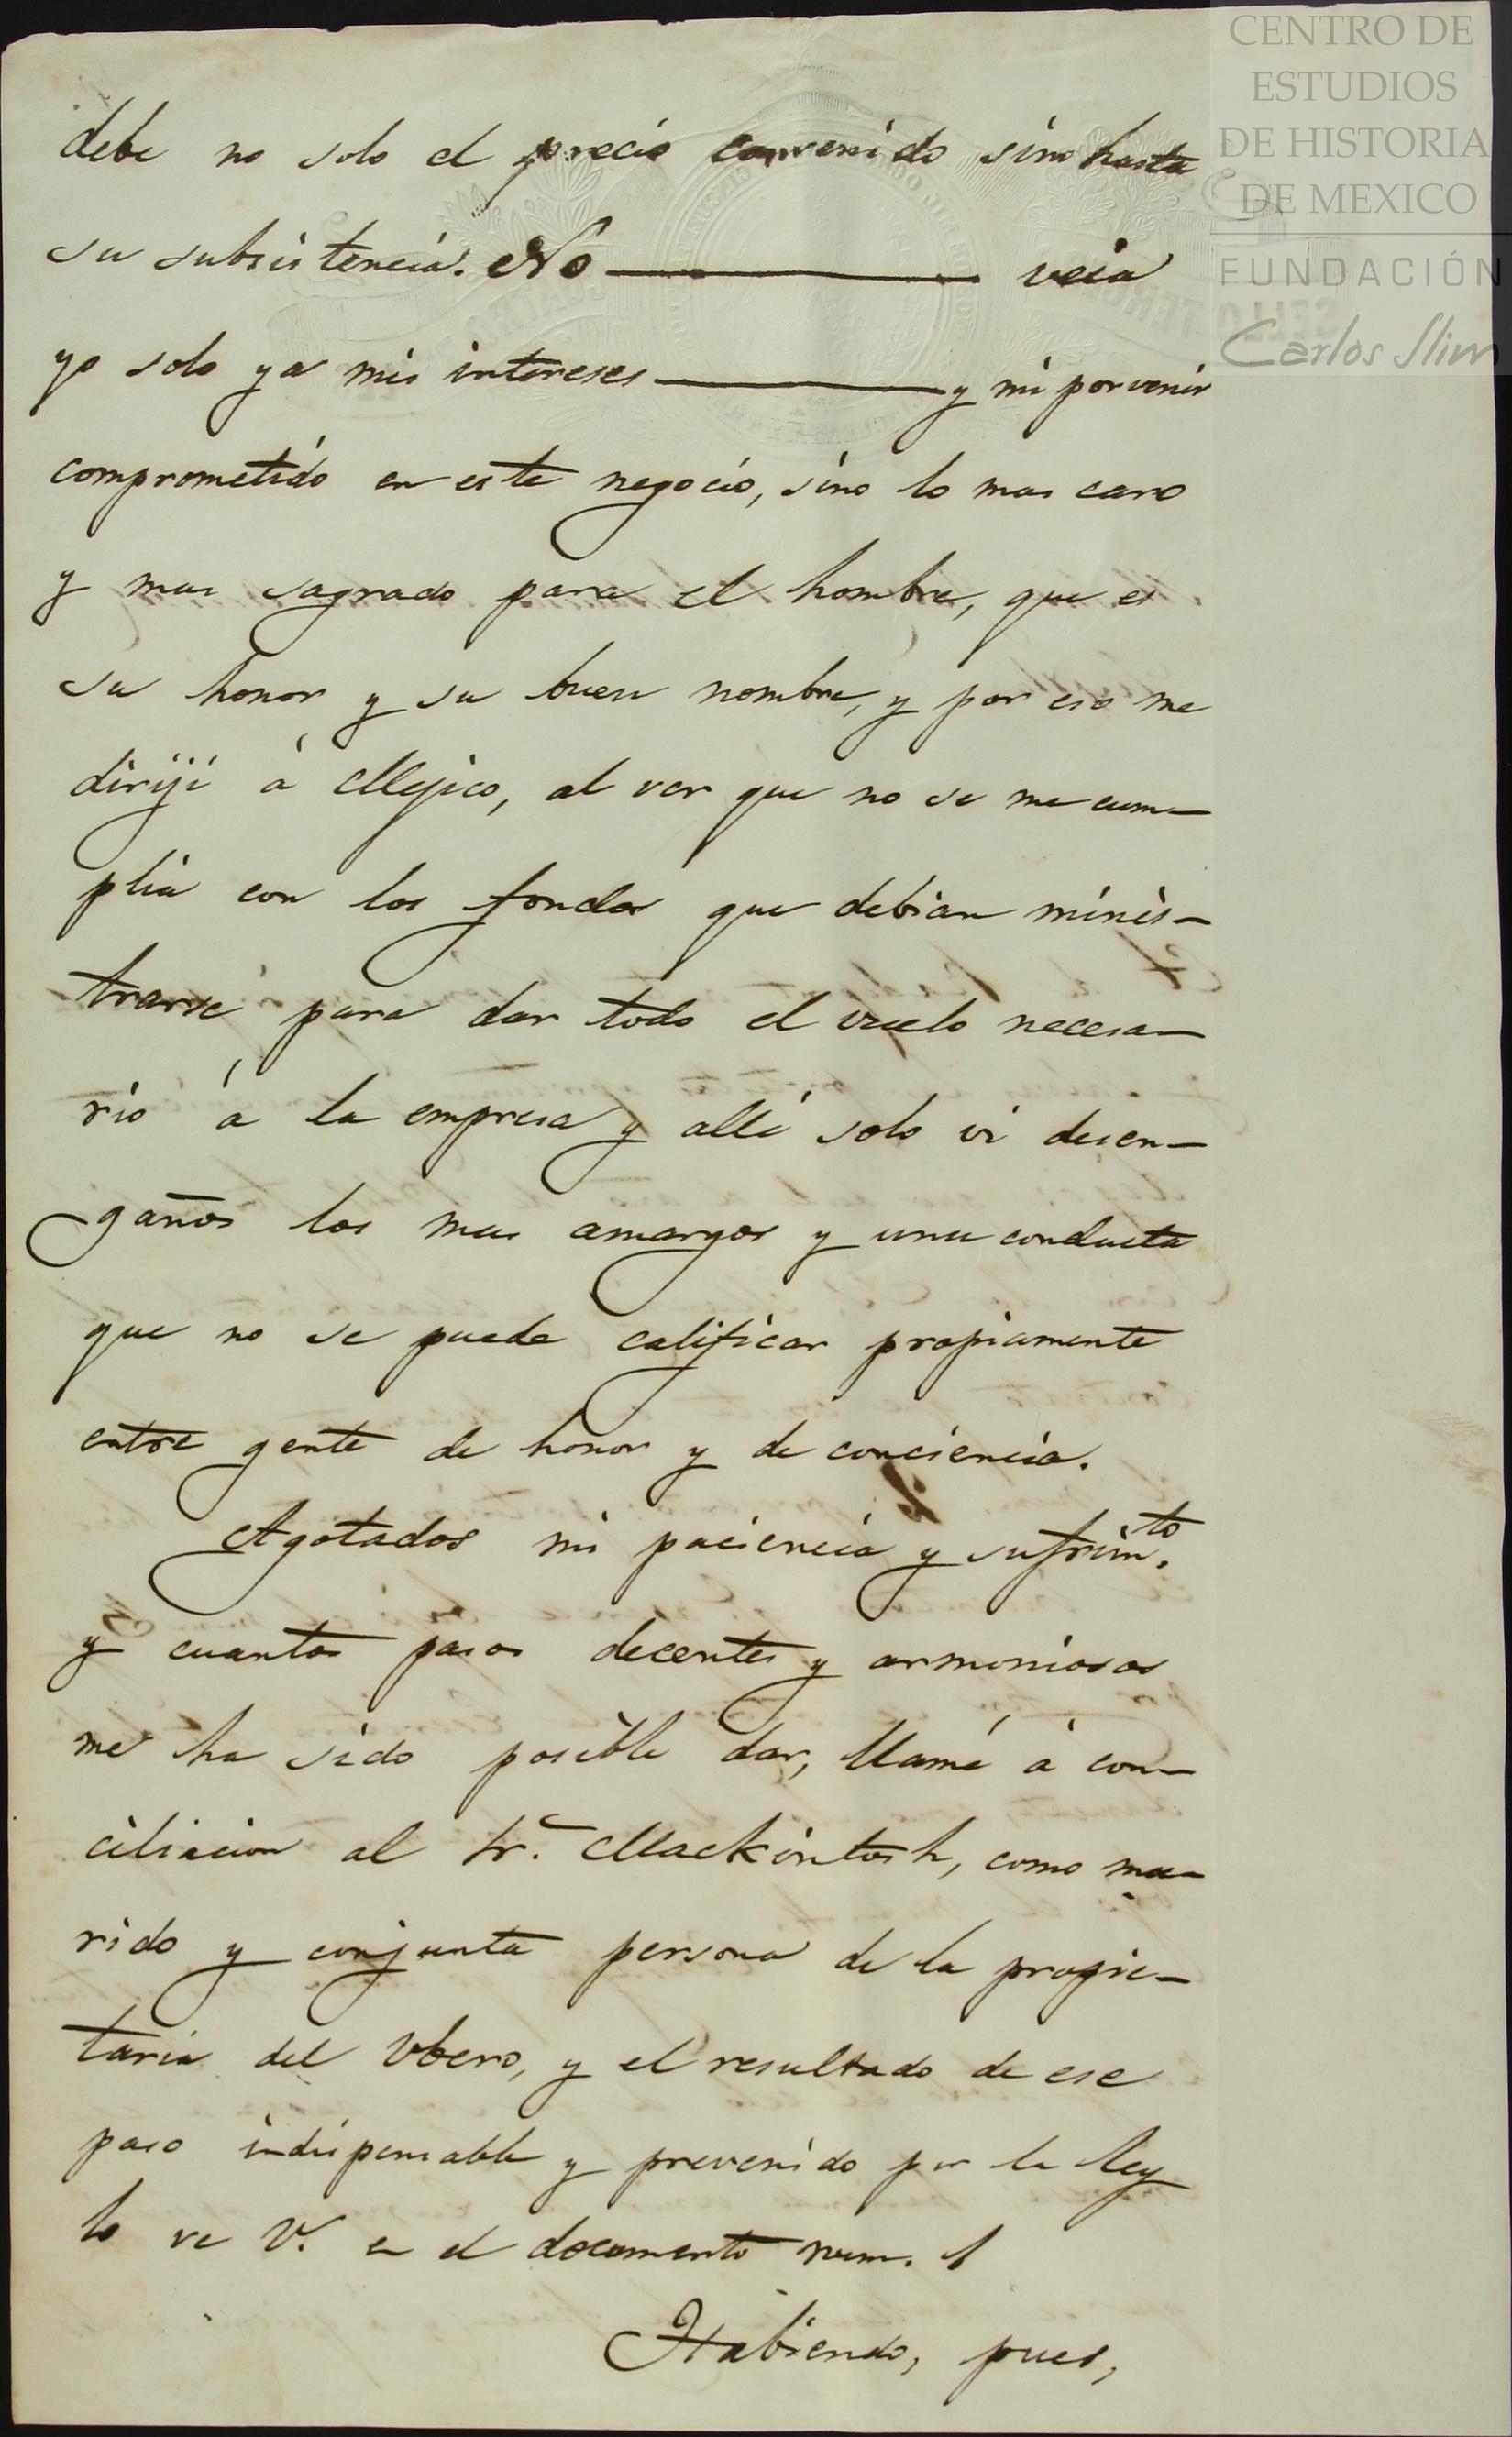 CENTRO DE
ESTUDIOS
DE HISTORIA
DE MEXICO
FUNDACIÓN
Carlos Slim
debe no solo el precio convenido sino hasta
su subsistencia. No ——— veia
yo solo ya mis intereses ——— y mi porvenir
comprometido en este negocio, sino lo mas caro
y mas sagrado para el hombre, que es
su honor y su buen nombre, y por eso me
diriji á Mejico, al ver que no se me cum-
plia con los fondos que debian minis-
trarse para dar todo el vuelo necesa-
rio á la empresa y alli solo vi desen-
gaños los mas amargos y una conducta
que no se puede calificar propiamente
entre gente de honor y de conciencia.
Agotados mi paciencia y sufrim.to
y cuantos pasos decentes y armoniosos
me ha sido posible dar, llamé á con-
ciliacion al Sr. Mackintosh, como ma-
rido y conjunta persona de la propie-
taria del Ubero, y el resultado de ese
paso indispensable y prevenido por la ley
lo ve V. en el documento num. 1
Habiendo, pues,